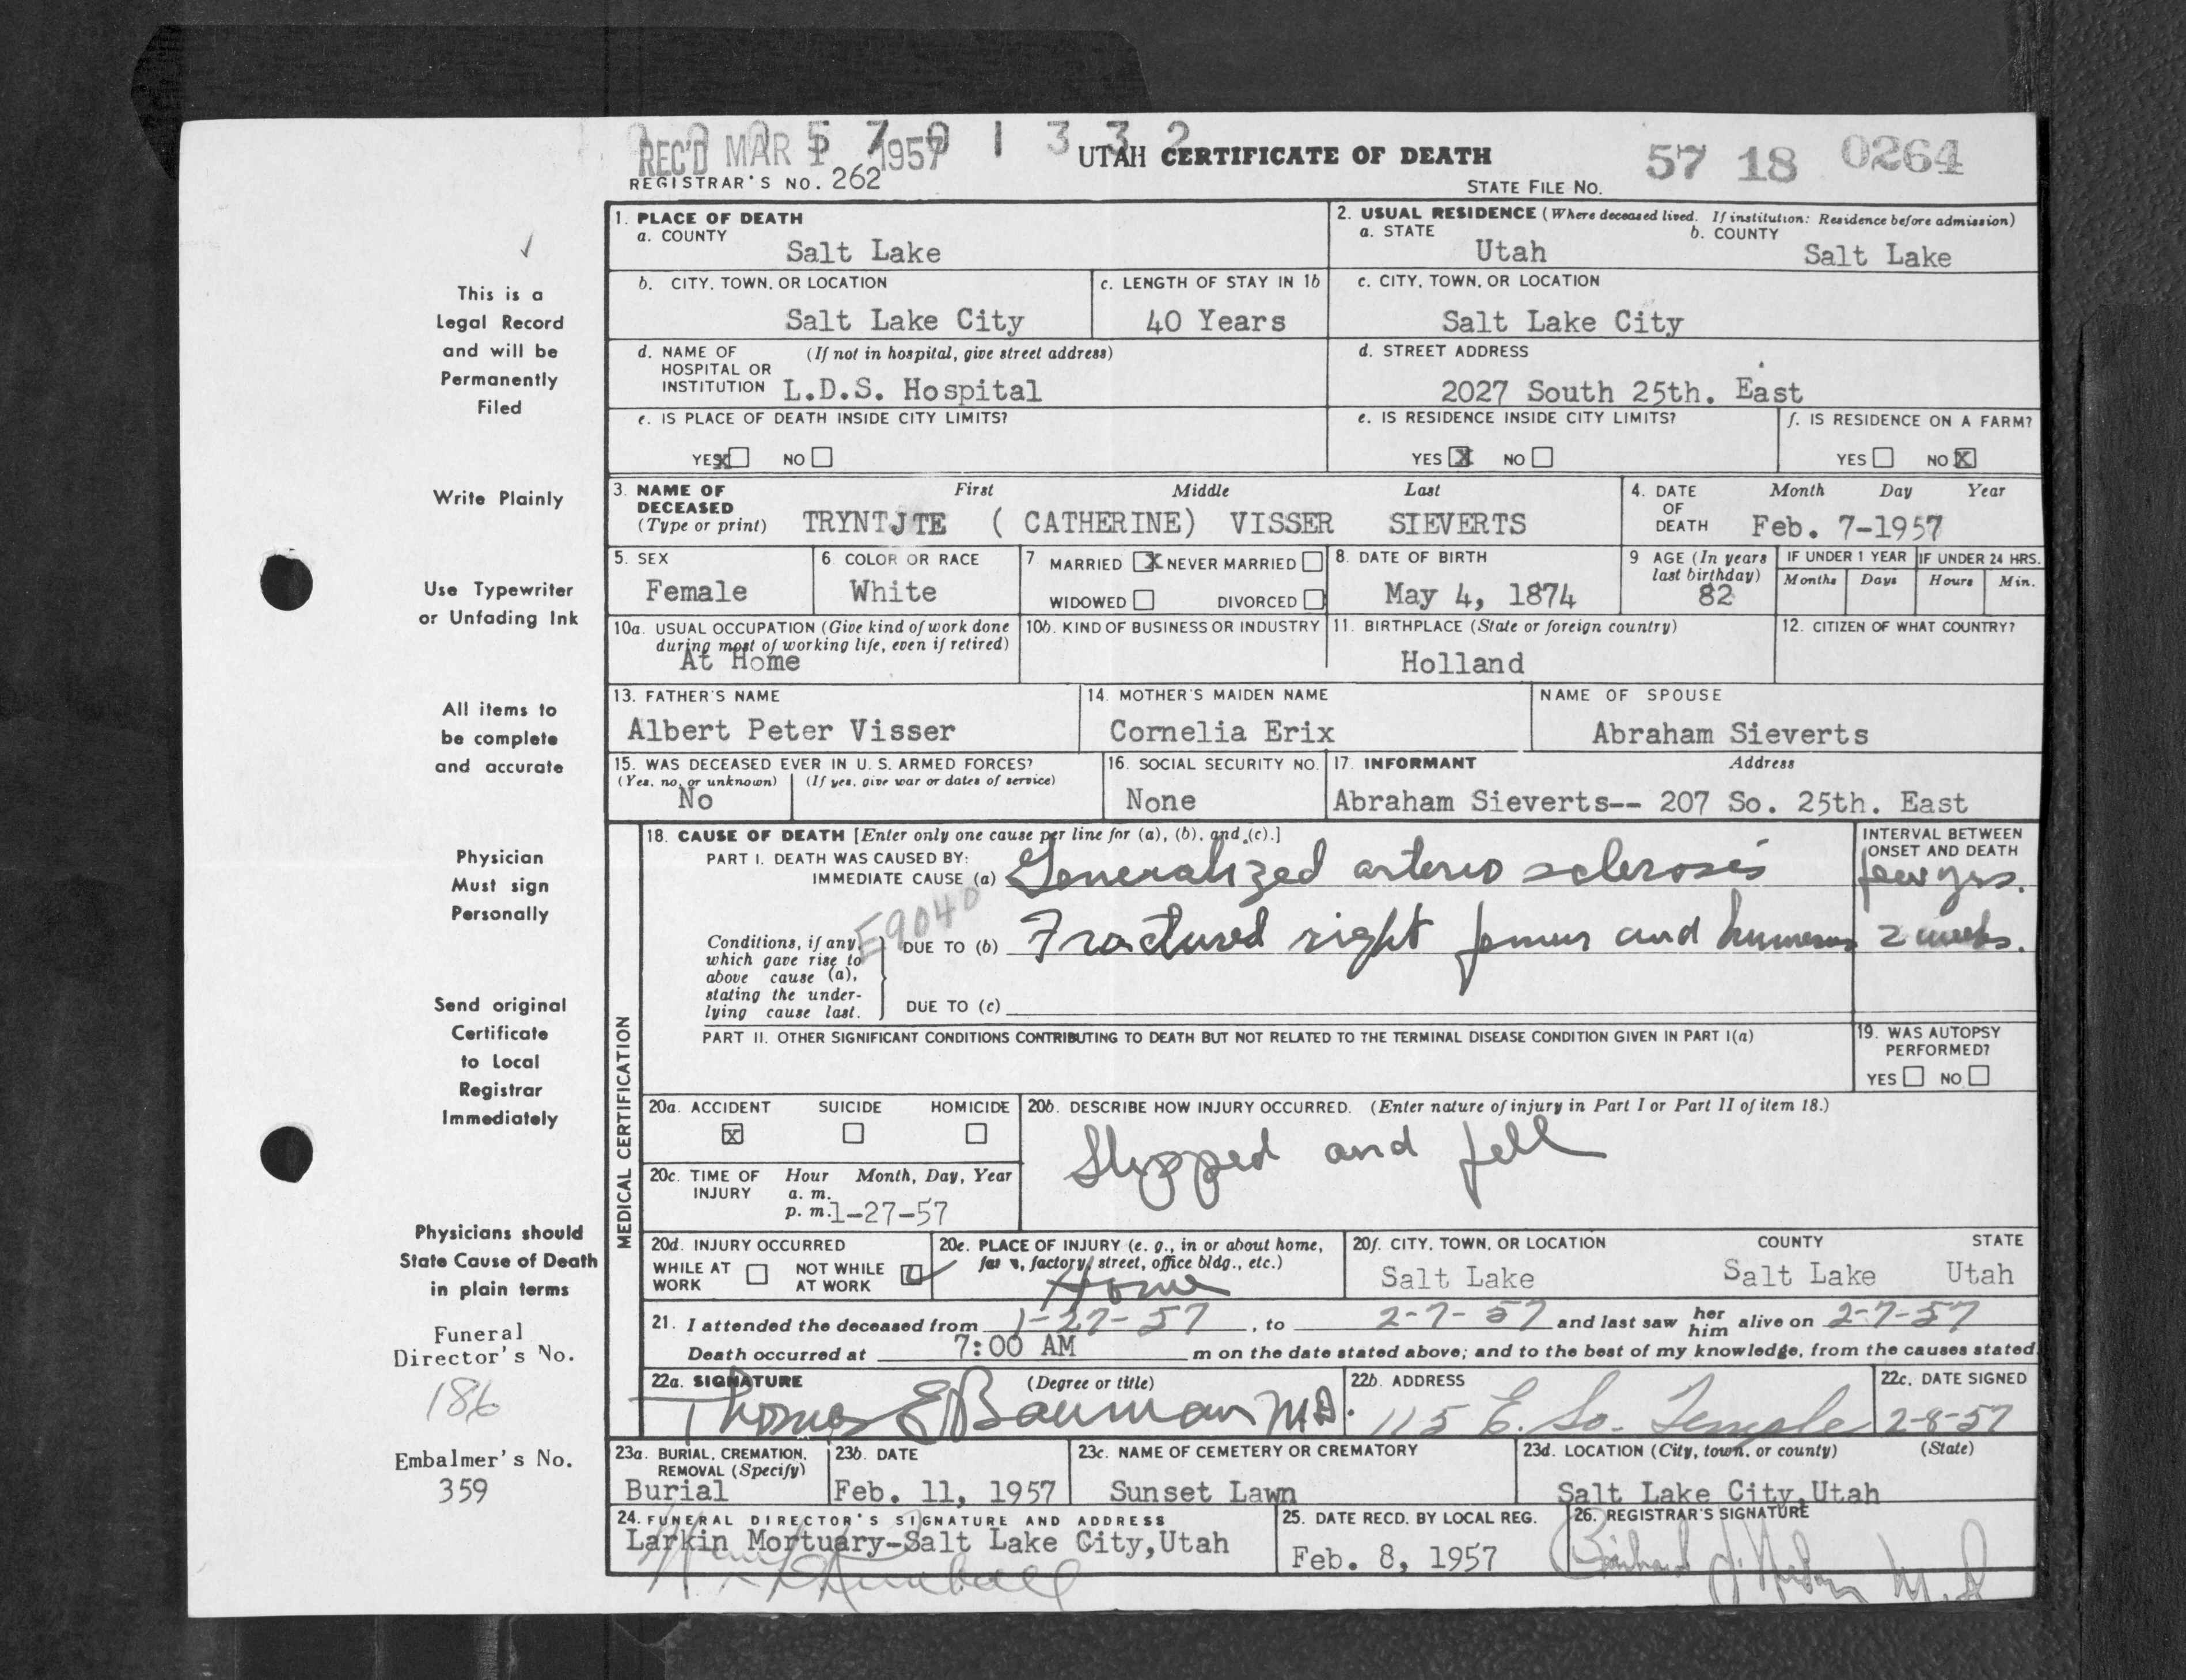 REC'D MAR 1 1957
UTAH CERTIFICATE OF DEATH
REGISTRAR'S NO. 262
STATE FILE NO. 57 18 0264
This is a
Legal Record
and will be
Permanently
Filed
Write Plainly
Use Typewriter
or Unfading Ink
All items to
be complete
and accurate
Physician
Must sign
Personally
Send original
Certificate
to Local
Registrar
Immediately
Physicians should
State Cause of Death
in plain terms
Funeral
Director's No.
186
Embalmer's No.
359
1. PLACE OF DEATH
a. COUNTY
Salt Lake
2. USUAL RESIDENCE (Where deceased lived. If institution: Residence before admission)
a. STATE b. COUNTY
Utah Salt Lake
b. CITY, TOWN, OR LOCATION
Salt Lake City
c. LENGTH OF STAY IN 1b
40 Years
c. CITY, TOWN, OR LOCATION
Salt Lake City
d. NAME OF (If not in hospital, give street address)
HOSPITAL OR
INSTITUTION L.D.S. Hospital
d. STREET ADDRESS
2027 South 25th. East
e. IS PLACE OF DEATH INSIDE CITY LIMITS?
YES X NO
e. IS RESIDENCE INSIDE CITY LIMITS?
YES X NO
f. IS RESIDENCE ON A FARM?
YES NO X
3. NAME OF First Middle Last
DECEASED
(Type or print) TRYNTJTE ( CATHERINE) VISSER SIEVERTS
4. DATE Month Day Year
OF
DEATH Feb. 7-1957
5. SEX
Female
6. COLOR OR RACE
White
7 MARRIED X NEVER MARRIED
WIDOWED DIVORCED
8. DATE OF BIRTH
May 4, 1874
9 AGE (In years
last birthday)
82
IF UNDER 1 YEAR
Months Days
IF UNDER 24 HRS.
Hours Min.
10a. USUAL OCCUPATION (Give kind of work done
during most of working life, even if retired)
At Home
10b. KIND OF BUSINESS OR INDUSTRY
11. BIRTHPLACE (State or foreign country)
Holland
12. CITIZEN OF WHAT COUNTRY?
13. FATHER'S NAME
Albert Peter Visser
14. MOTHER'S MAIDEN NAME
Cornelia Erix
NAME OF SPOUSE
Abraham Sieverts
15. WAS DECEASED EVER IN U. S. ARMED FORCES?
(Yes, no, or unknown) (If yes, give war or dates of service)
No
16. SOCIAL SECURITY NO.
None
17. INFORMANT Address
Abraham Sieverts-- 207 So. 25th. East
MEDICAL CERTIFICATION
18. CAUSE OF DEATH [Enter only one cause per line for (a), (b), and (c).]
PART I. DEATH WAS CAUSED BY:
IMMEDIATE CAUSE (a) Generalized arterio sclerosis
INTERVAL BETWEEN
ONSET AND DEATH
few yrs.
E9040
Conditions, if any,
which gave rise to
above cause (a),
stating the under-
lying cause last.
DUE TO (b) Fractured right femur and humerus 2 weeks.
DUE TO (c)
PART II. OTHER SIGNIFICANT CONDITIONS CONTRIBUTING TO DEATH BUT NOT RELATED TO THE TERMINAL DISEASE CONDITION GIVEN IN PART I(a)
19. WAS AUTOPSY
PERFORMED?
YES NO
20a. ACCIDENT SUICIDE HOMICIDE
X
20b. DESCRIBE HOW INJURY OCCURRED. (Enter nature of injury in Part I or Part II of item 18.)
Slipped and fell
20c. TIME OF Hour Month, Day, Year
INJURY a. m.
p. m. 1-27-57
20d. INJURY OCCURRED
WHILE AT NOT WHILE
WORK AT WORK
20e. PLACE OF INJURY (e. g., in or about home,
factory, street, office bldg., etc.)
Home
20f. CITY, TOWN, OR LOCATION COUNTY STATE
Salt Lake Salt Lake Utah
21. I attended the deceased from 1-27-57, to 2-7-57 and last saw her him alive on 2-7-57
Death occurred at 7:00 AM m on the date stated above; and to the best of my knowledge, from the causes stated
22a. SIGNATURE (Degree or title)
Thomas E Bauman MD.
22b. ADDRESS
115 E. So. Temple
22c. DATE SIGNED
2-8-57
23a. BURIAL, CREMATION,
REMOVAL (Specify)
Burial
23b. DATE
Feb. 11, 1957
23c. NAME OF CEMETERY OR CREMATORY
Sunset Lawn
23d. LOCATION (City, town, or county) (State)
Salt Lake City,Utah
24. FUNERAL DIRECTOR'S SIGNATURE AND ADDRESS
Larkin Mortuary-Salt Lake City,Utah
25. DATE RECD. BY LOCAL REG.
Feb. 8, 1957
26. REGISTRAR'S SIGNATURE